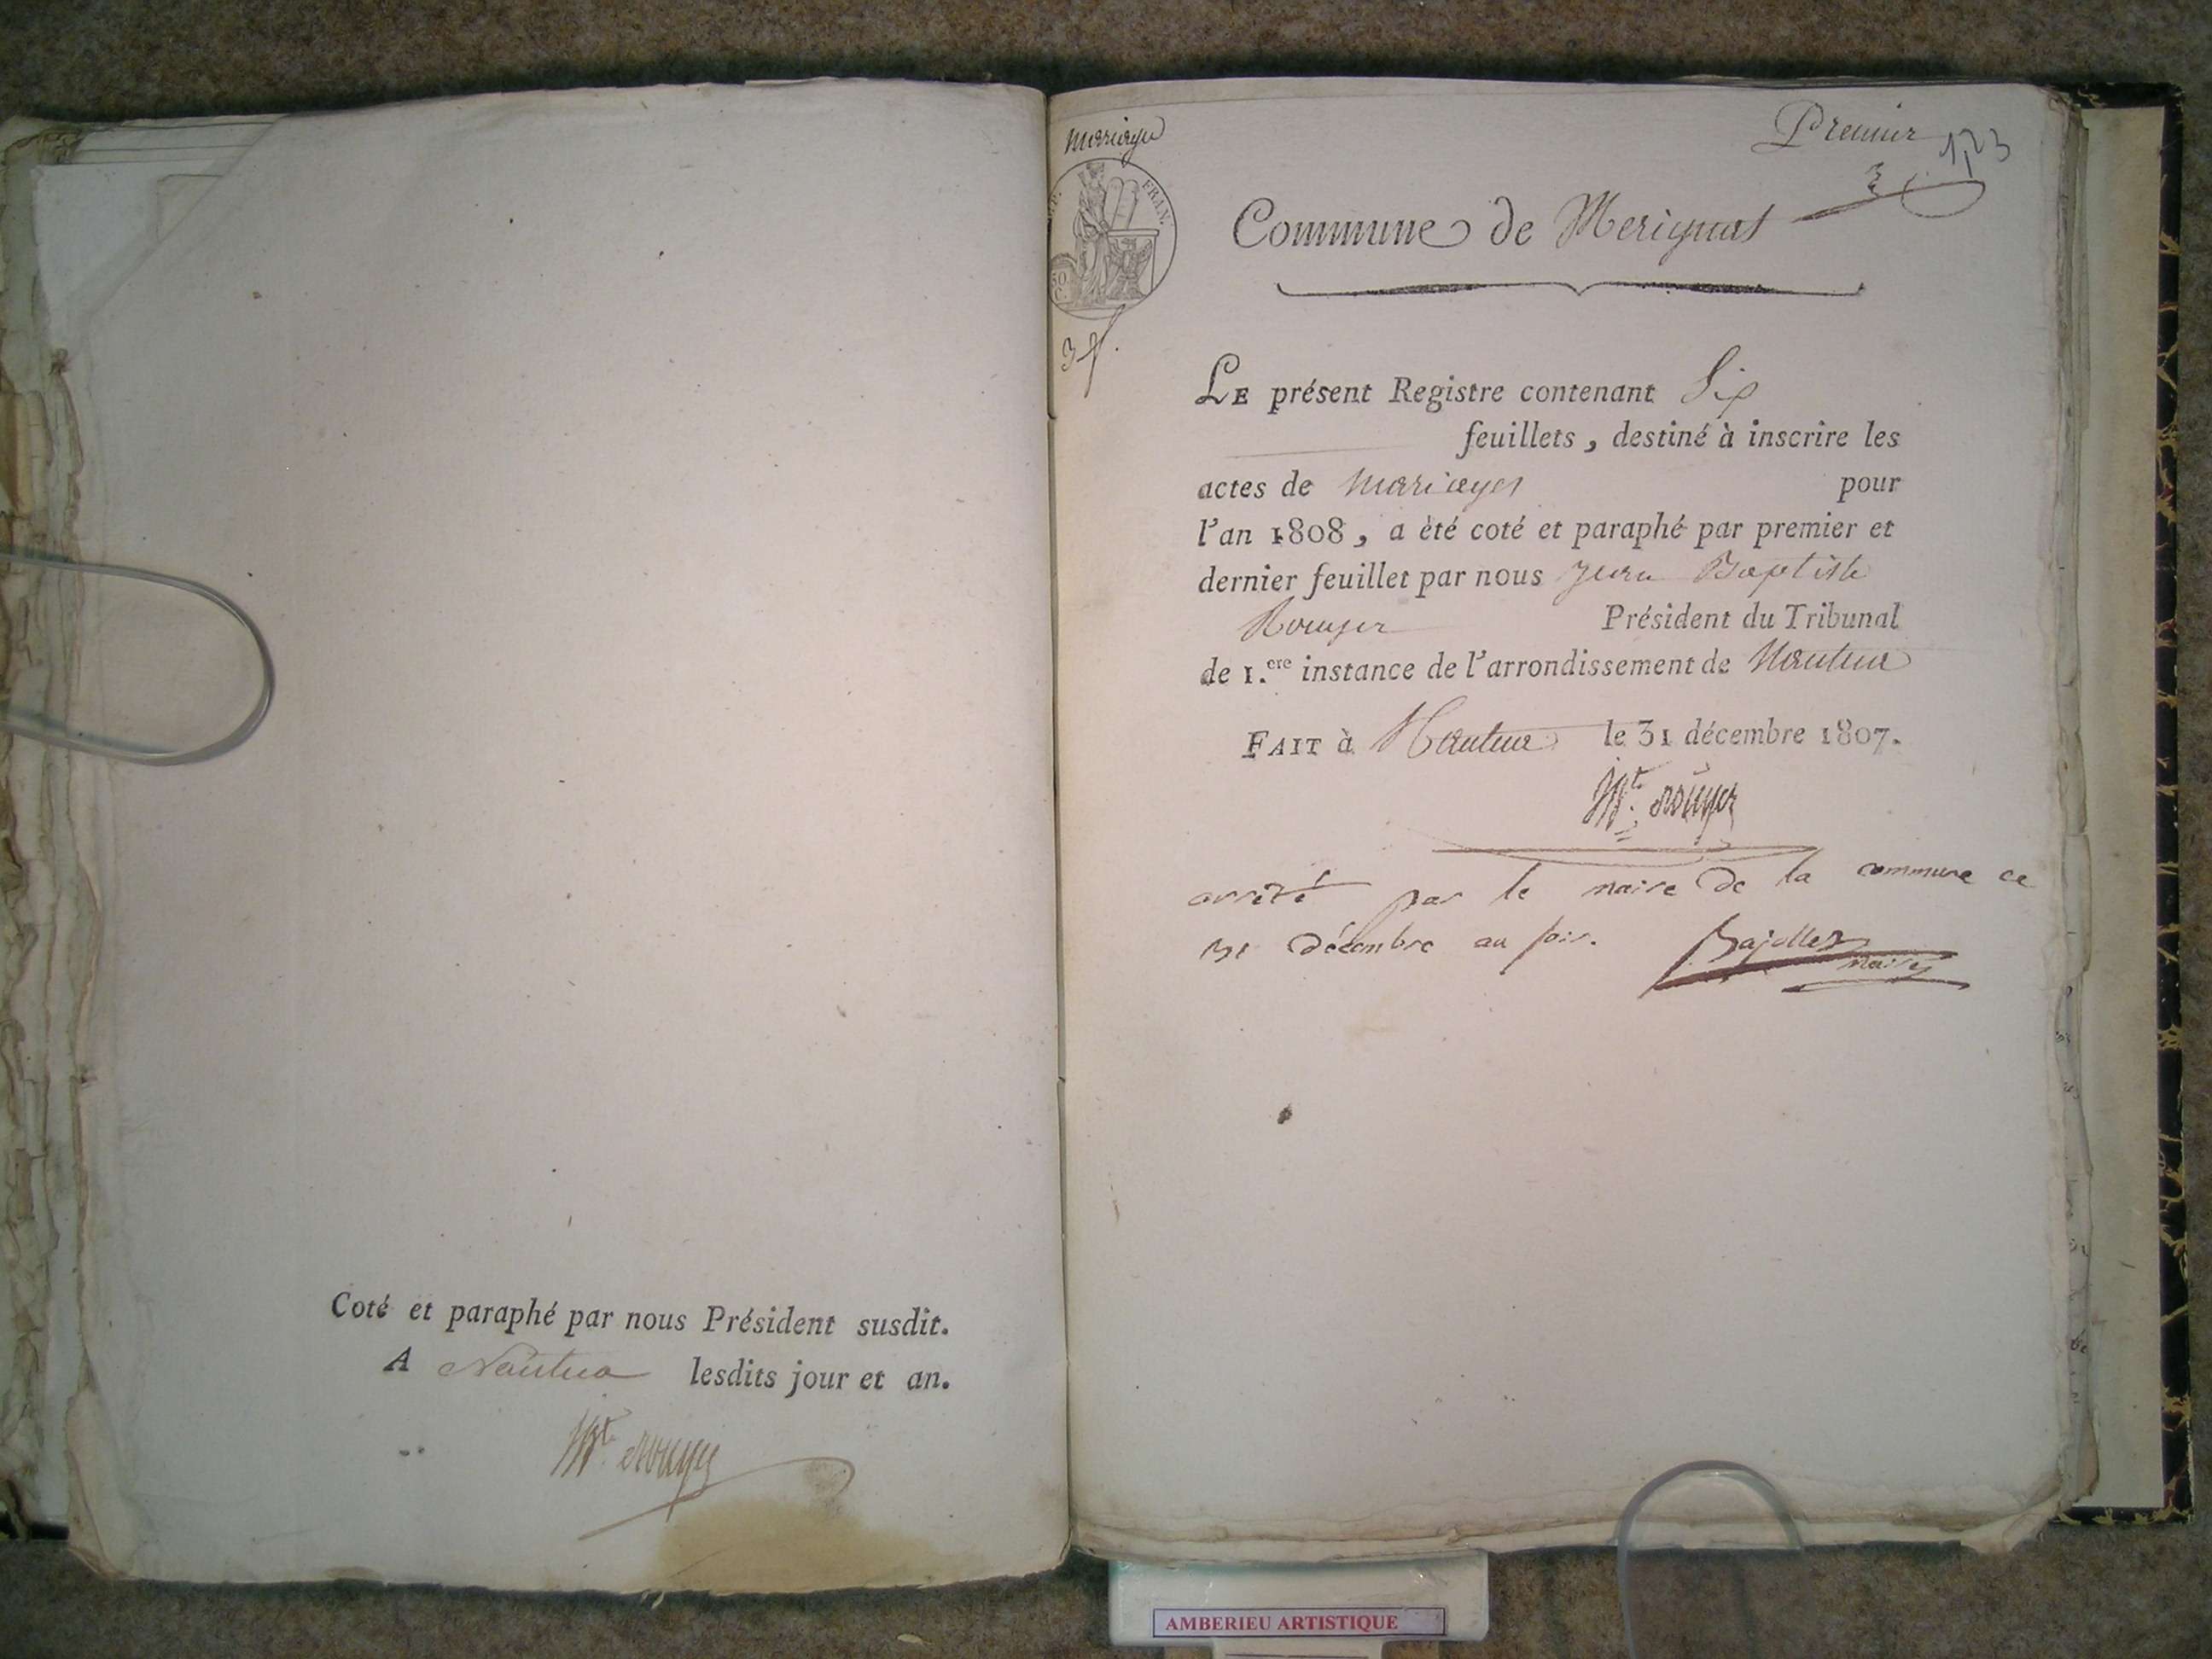 Coté et paraphé par nous Président susdit.
A Nantua lesdits jour et an.
Bte Rouyer
mariages
Premier
123
FRAN.
50
C.
3 f.
Commune de Merignat
LE présent Registre contenant Six
feuillets, destiné à inscrire les
actes de mariages pour
l'an 1808, a été coté et paraphé par premier et
dernier feuillet par nous Jean Baptiste
Rouyer Président du Tribunal
de 1.ere instance de l'arrondissement de Nantua
FAIT à Nantua le 31 décembre 1807.
Bte Rouyer
arrêté par le maire de la commune ce
31 décembre au soir.
maire
AMBERIEU ARTISTIQUE